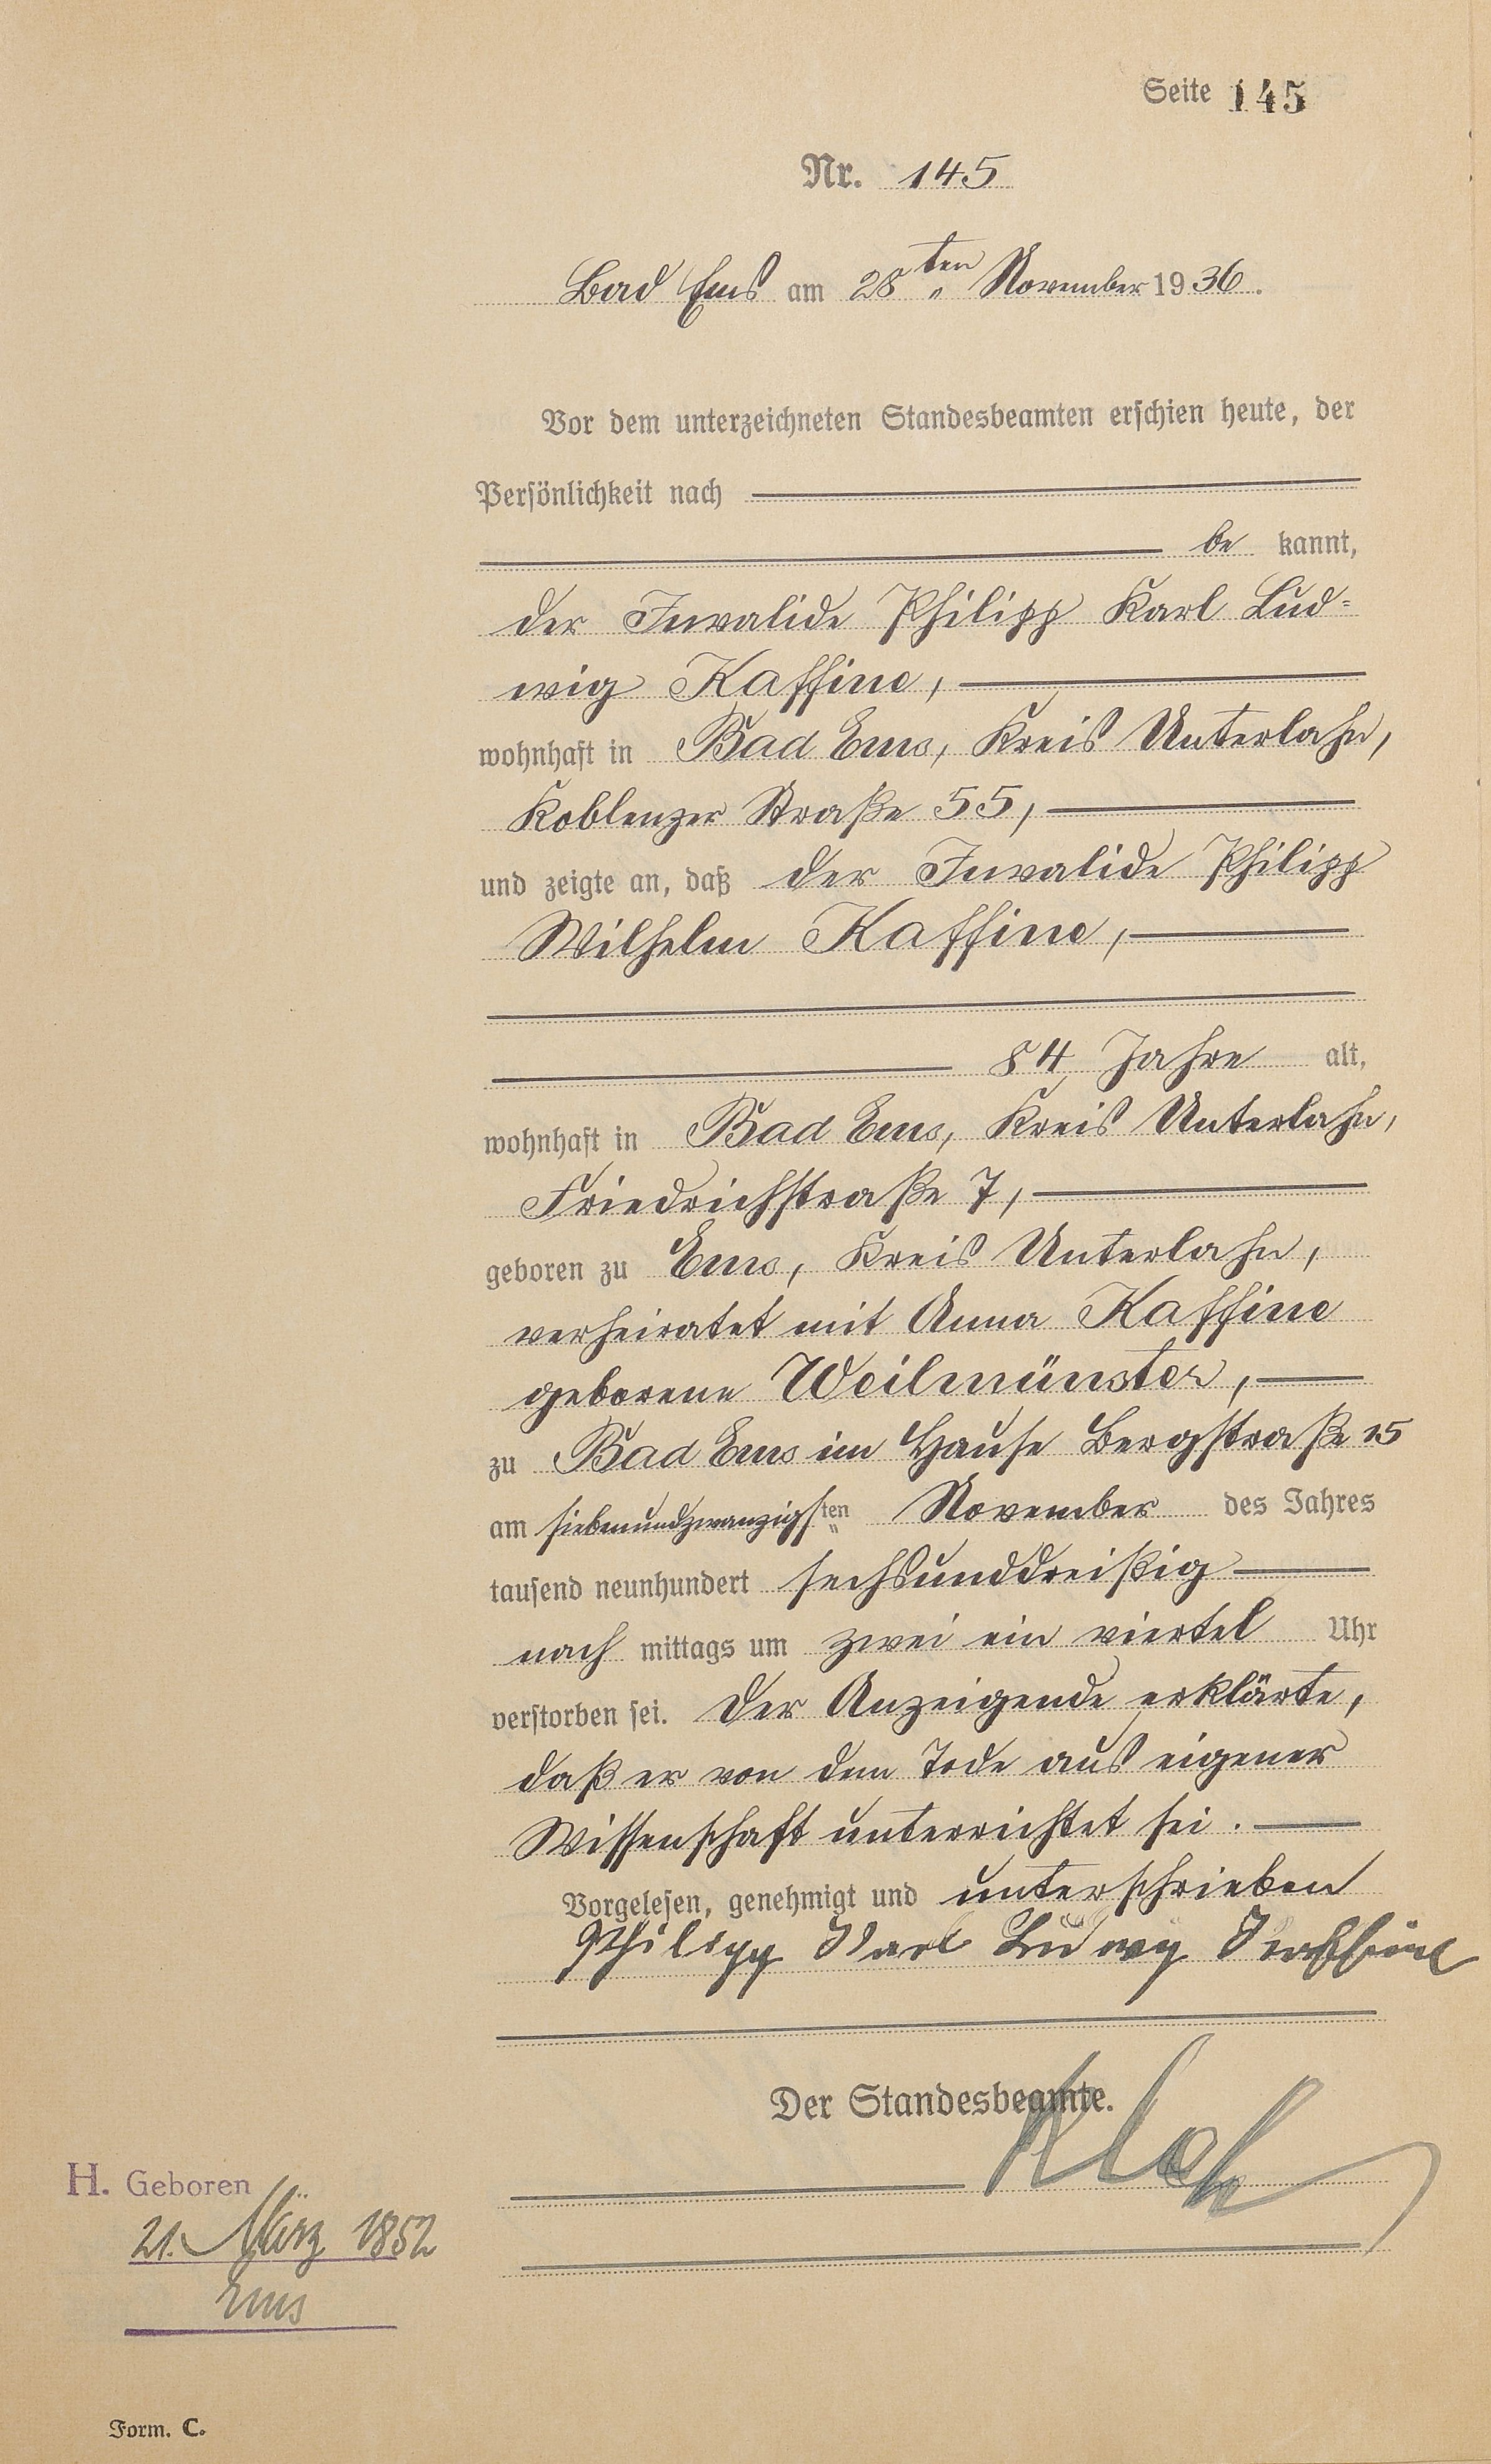 Seite 145
Nr. 145
Bad Ems am 28ten November 1936.
Vor dem unterzeichneten Standesbeamten erschien heute, der
Persönlichkeit nach
be kannt,
der Invalide Philipp Karl Lud-
wig Kaffine,
wohnhaft in Bad Ems, Kreis Unterlahn,
Koblenzer Straße 55,
und zeigte an, daß der Invalide Philipp
Wilhelm Kaffine,
84 Jahre alt,
wohnhaft in Bad Ems, Kreis Unterlahn,
Friedrichstraße 7,
geboren zu Ems, Kreis Unterlahn,
verheiratet mit Anna Kaffine
geborene Weilmünster,
zu Bad Ems im Hause Bergstraße 15
am siebenundzwanzigsten November des Jahres
tausend neunhundert sechsunddreißig
nach mittags um zwei ein viertel Uhr
verstorben sei. Der Anzeigende erklärte,
daß er von dem Tode aus eigener
Wissenschaft unterrichtet sei.
Vorgelesen, genehmigt und unterschrieben
Philipp Karl Ludwig Kaffine
Der Standesbeamte.
H. Geboren
21. März 1852
Ems
Form. C.